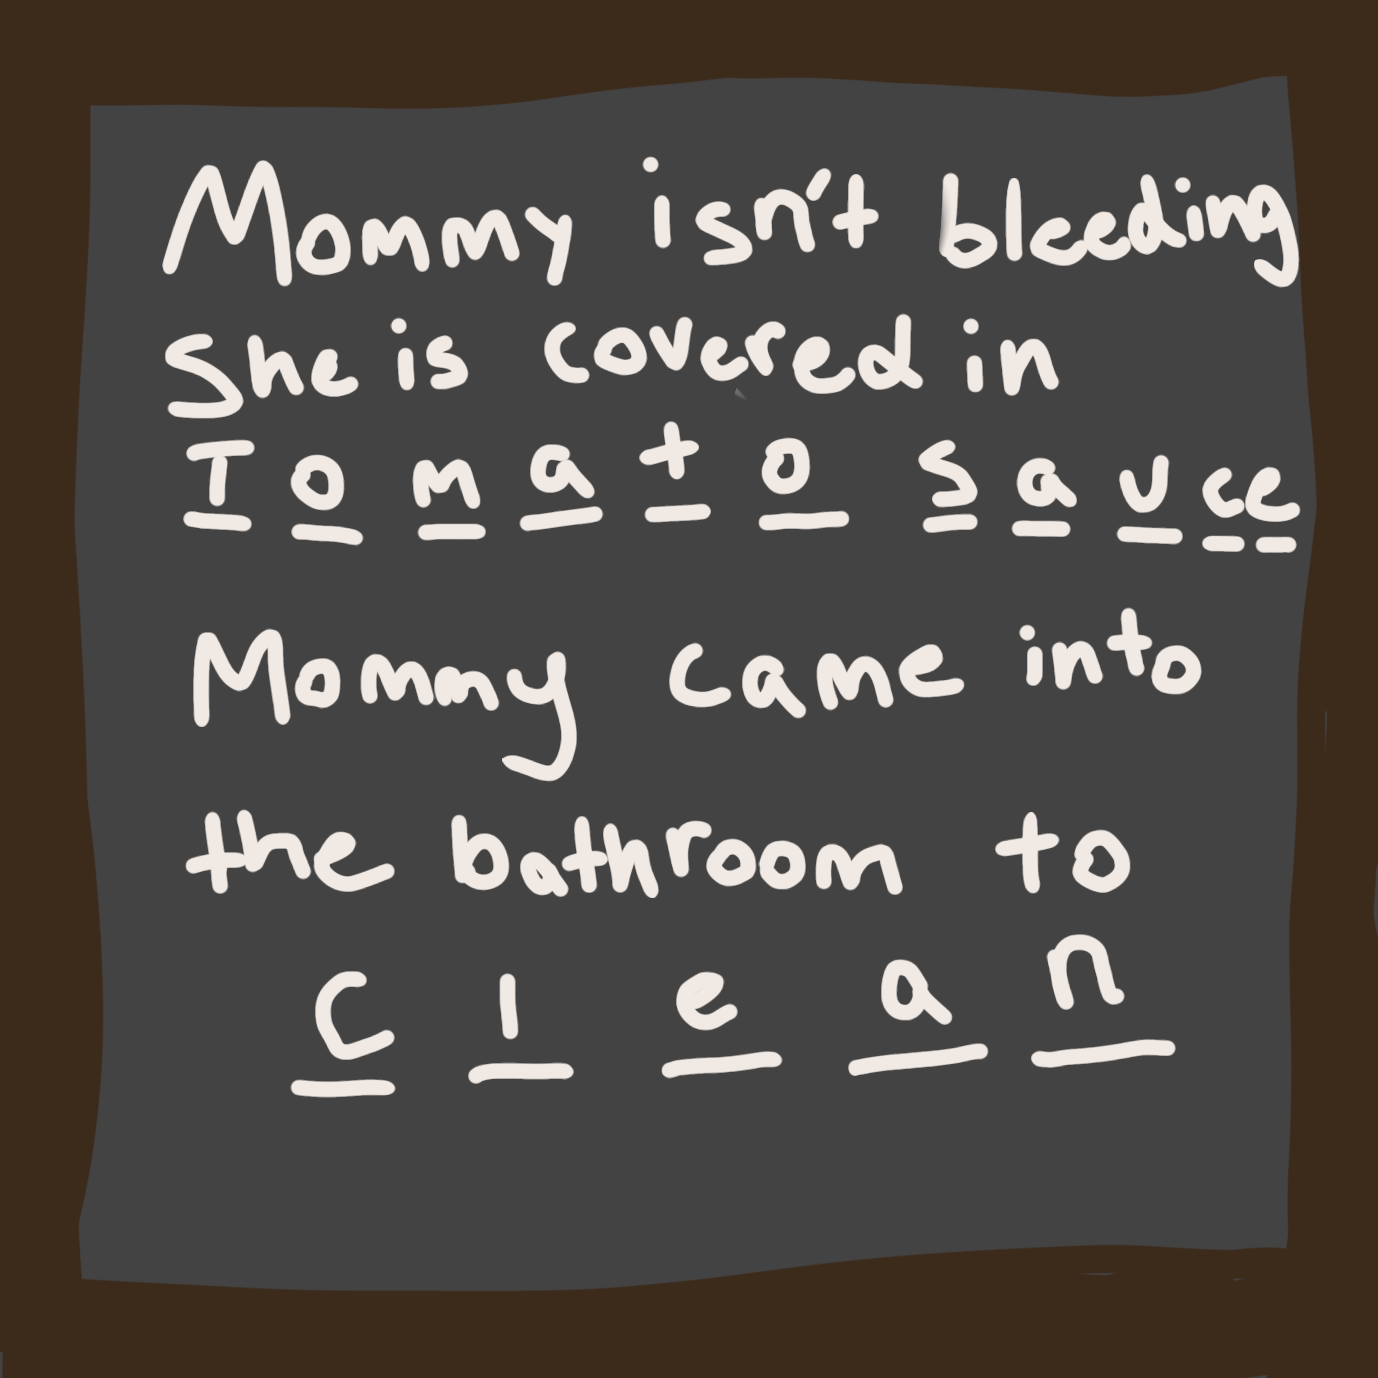 Mommy isn't bleeding
She is covered in
Tomato sauce
Mommy came into
the bathroom to
Clean